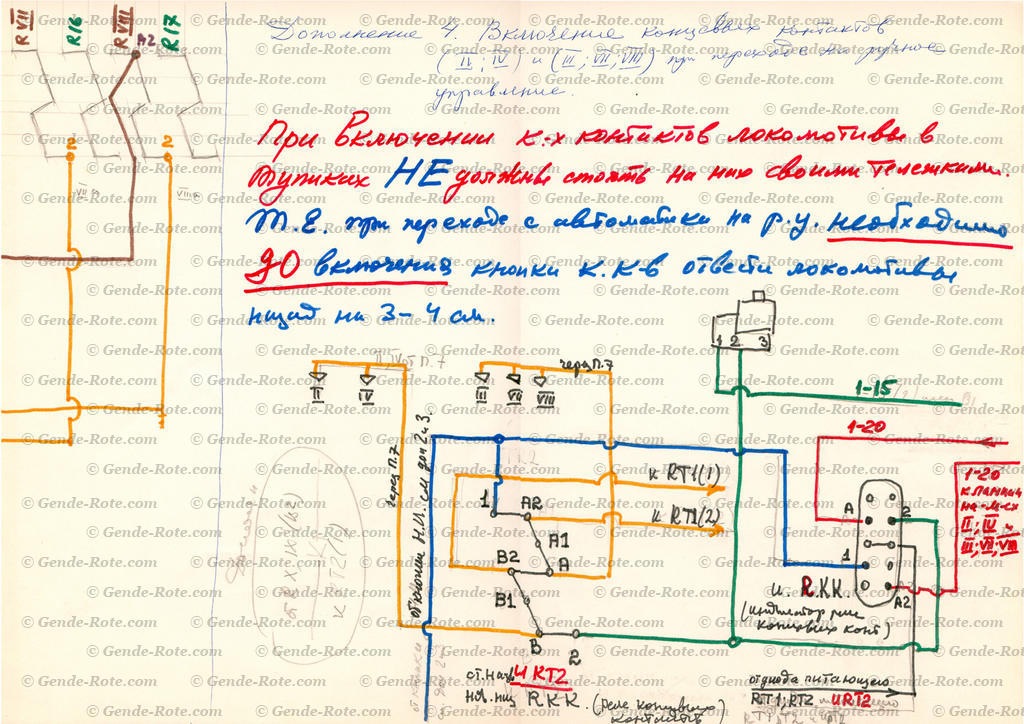 R VII R16 R VIII A2 R17
Дополнение 4. Включение концевых контактов
(II; IV) и (III; VII; VIII) при переходе на ручное
управление.
При включении к-х контактов локомотивы в
тупиках НЕ должны стоять на них своими тележками.
Т.Е. при переходе с автоматики на р.у. необходимо
ДО включения кнопки к.к-в отвести локомотивы
назад на 3-4 см.
2 2
VII VIII
1 2 3
через П.7
II IV III VII VIII
1-15
1-20
1-20
к лампам
на м-сх
II; IV и
III; VII; VIII
через П.7
от кнопки Н.И. см. доп 2 и 3.
к RT1(1)
к RT2(2)
1 A2
A1
B2 A
B1
B 2
A 2
1
A2
и. R.K.K.
(индикатор реле
концевых конт)
ст. назв. И RT2
нов. наз. RKK. (реле концевых
контактов)
от диода питающего
RT1; RT2 и URT2
© Gende-Rote.com